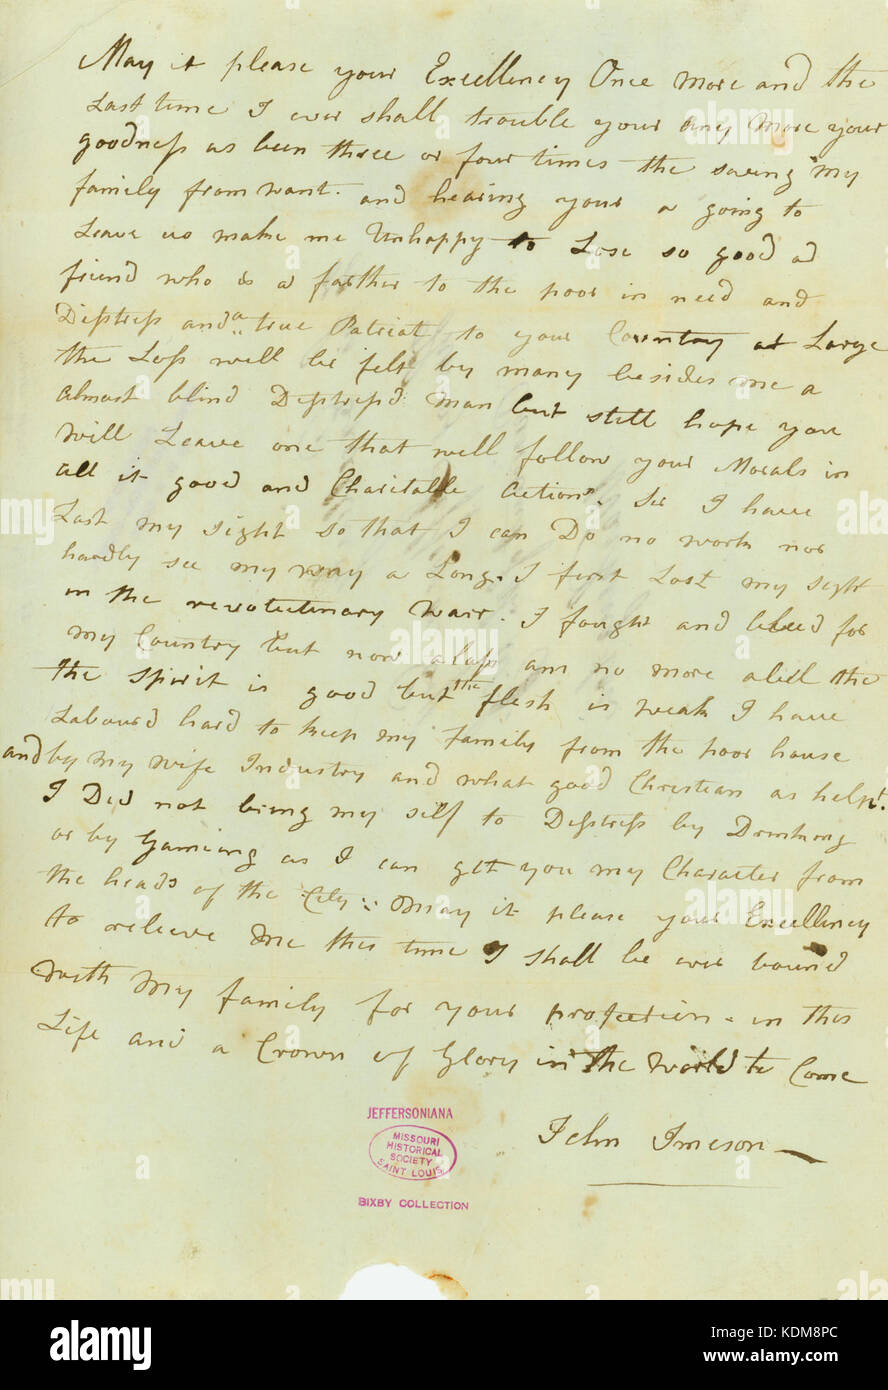 May it please your Excellency Once more and the
Last time I ever shall trouble your any More your
goodness as been three or four times the saveing my
family from want. and hearing your a going to
Leave us make me Unhappy to Lose so good a
friend who is a farther to the poor in need and
Disstress and a true Patriat to your Country at Large
the Loss will be felt by many besides me a
almost blind Disstressd man but still hope you
will Leave one that well follow your Morals in
all it good and Charitable Actions. Sir I have
Last my sight so that I can Do no work nor
hardly see my way a Long. I first Lost my sight
in the revolutinary Warr. I fought and bleed for
my Country but now alass am no more abell the
the spirit is good but the flesh is weak I have
Labourd hard to keep my family from the poor house
and by my wife Industry and what good Christian as helpt.
I Did not bring my self to Disstress by Drinking
or by Gameing as I can get you my Character from
the heads of the City. May it please your Excellency
to relieve me this time I shall be ever bound
with my family for your protection. in this
Life and a Crown of Glory in the World to Come
John Imeson
JEFFERSONIANA
MISSOURI
HISTORICAL
SOCIETY
SAINT LOUIS
BIXBY COLLECTION
alamy
alamy stock photo
KDM8PC